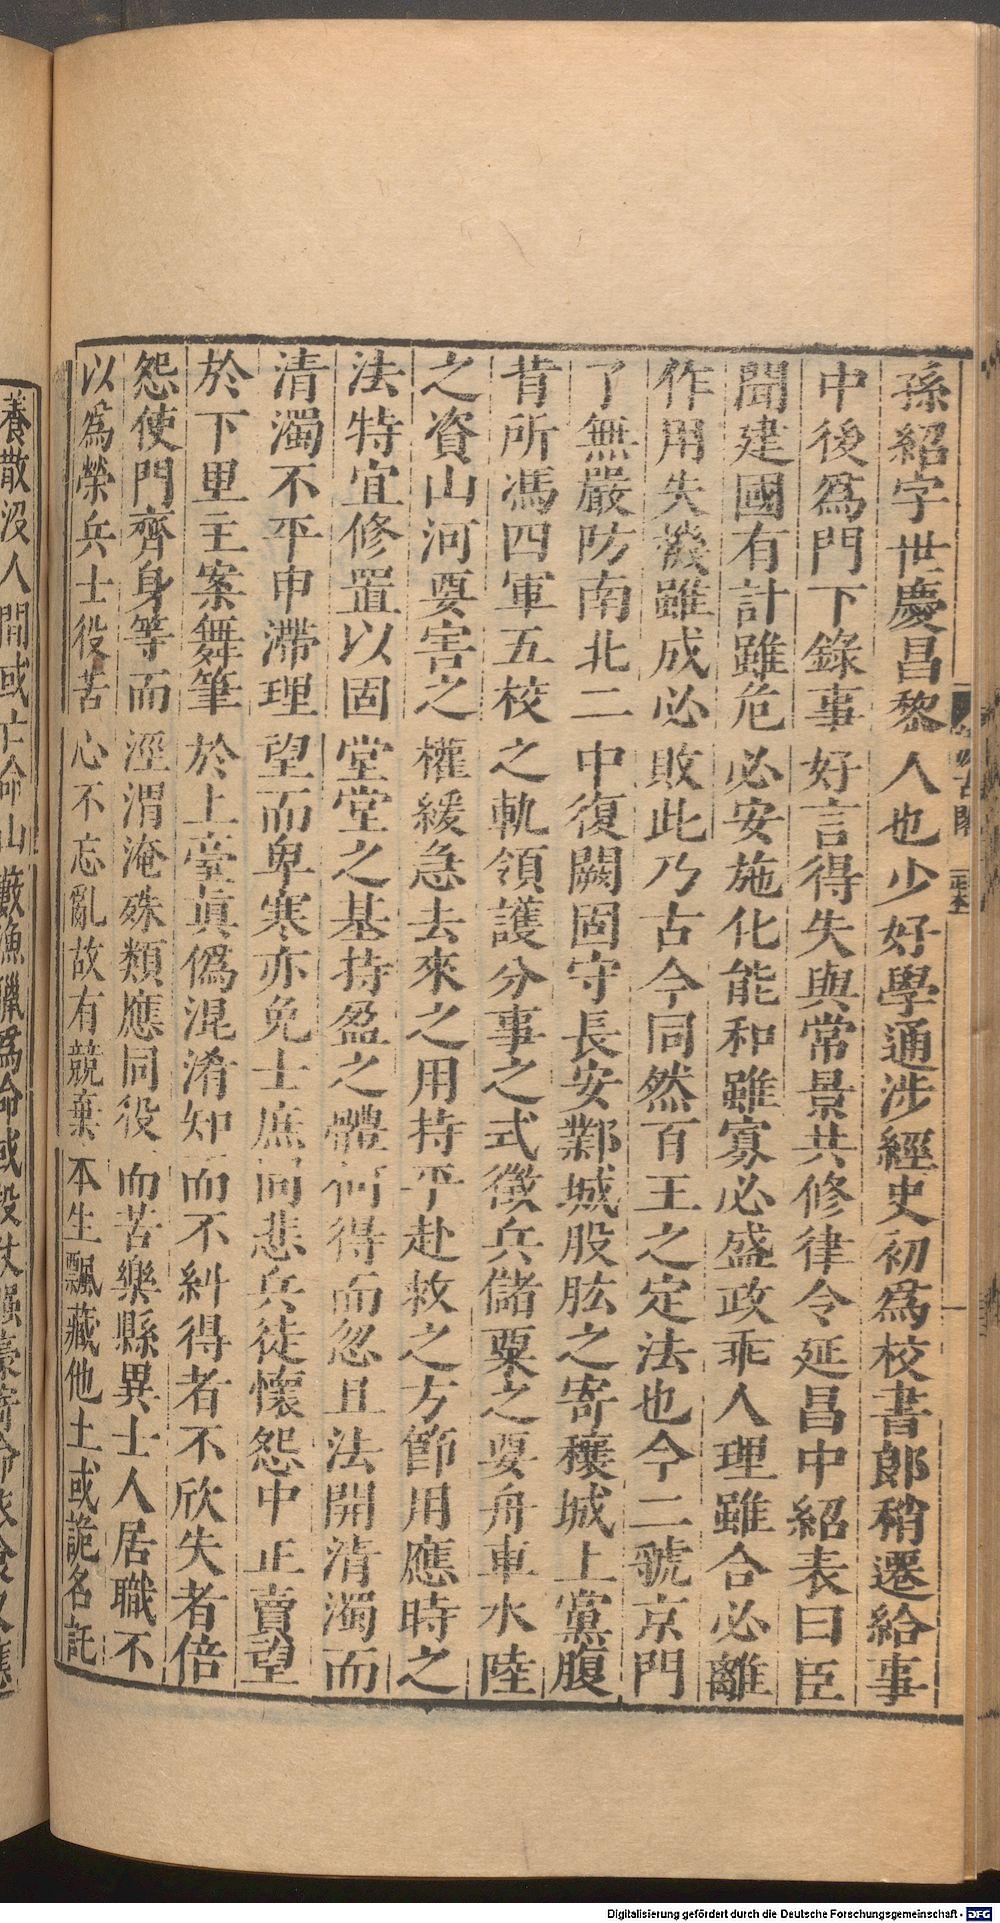 孫紹字世慶昌黎人也少好學通涉經史初爲校書郎稍遷給事
中後爲門下錄事好言得失與常景共修律令延昌中紹表曰臣
聞建國有計雖危必安施化能和雖寡必盛政乖人理雖合必離
作用失機雖成必敗此乃古今同然百王之定法也今二虢京門
了無嚴防南北二中復闕固守長安鄴城股肱之寄穰城上黨腹
背所馮四軍五校之軌領護分事之式徵兵儲粟之要舟車水陸
之資山河要害之權緩急去來之用持平赴救之方節用應時之
法特宜修置以固堂堂之基持盈之體何得而忽且法開清濁而
清濁不平申滯理望而卑寒亦免士庶同悲兵徒懷怨中正賣望
於下里主案舞筆於上臺眞僞混淆知而不糾得者不欣失者倍
怨使門齊身等而涇渭淹殊類應同役而苦樂縣異士人居職不
以爲榮兵士役苦心不忘亂故有競棄本生飄藏他土或詭名託
養散沒人間或亡命山藪漁獵爲命或投仗強豪寄命衣食又應
Digitalisierung gefördert durch die Deutsche Forschungsgemeinschaft - DFG